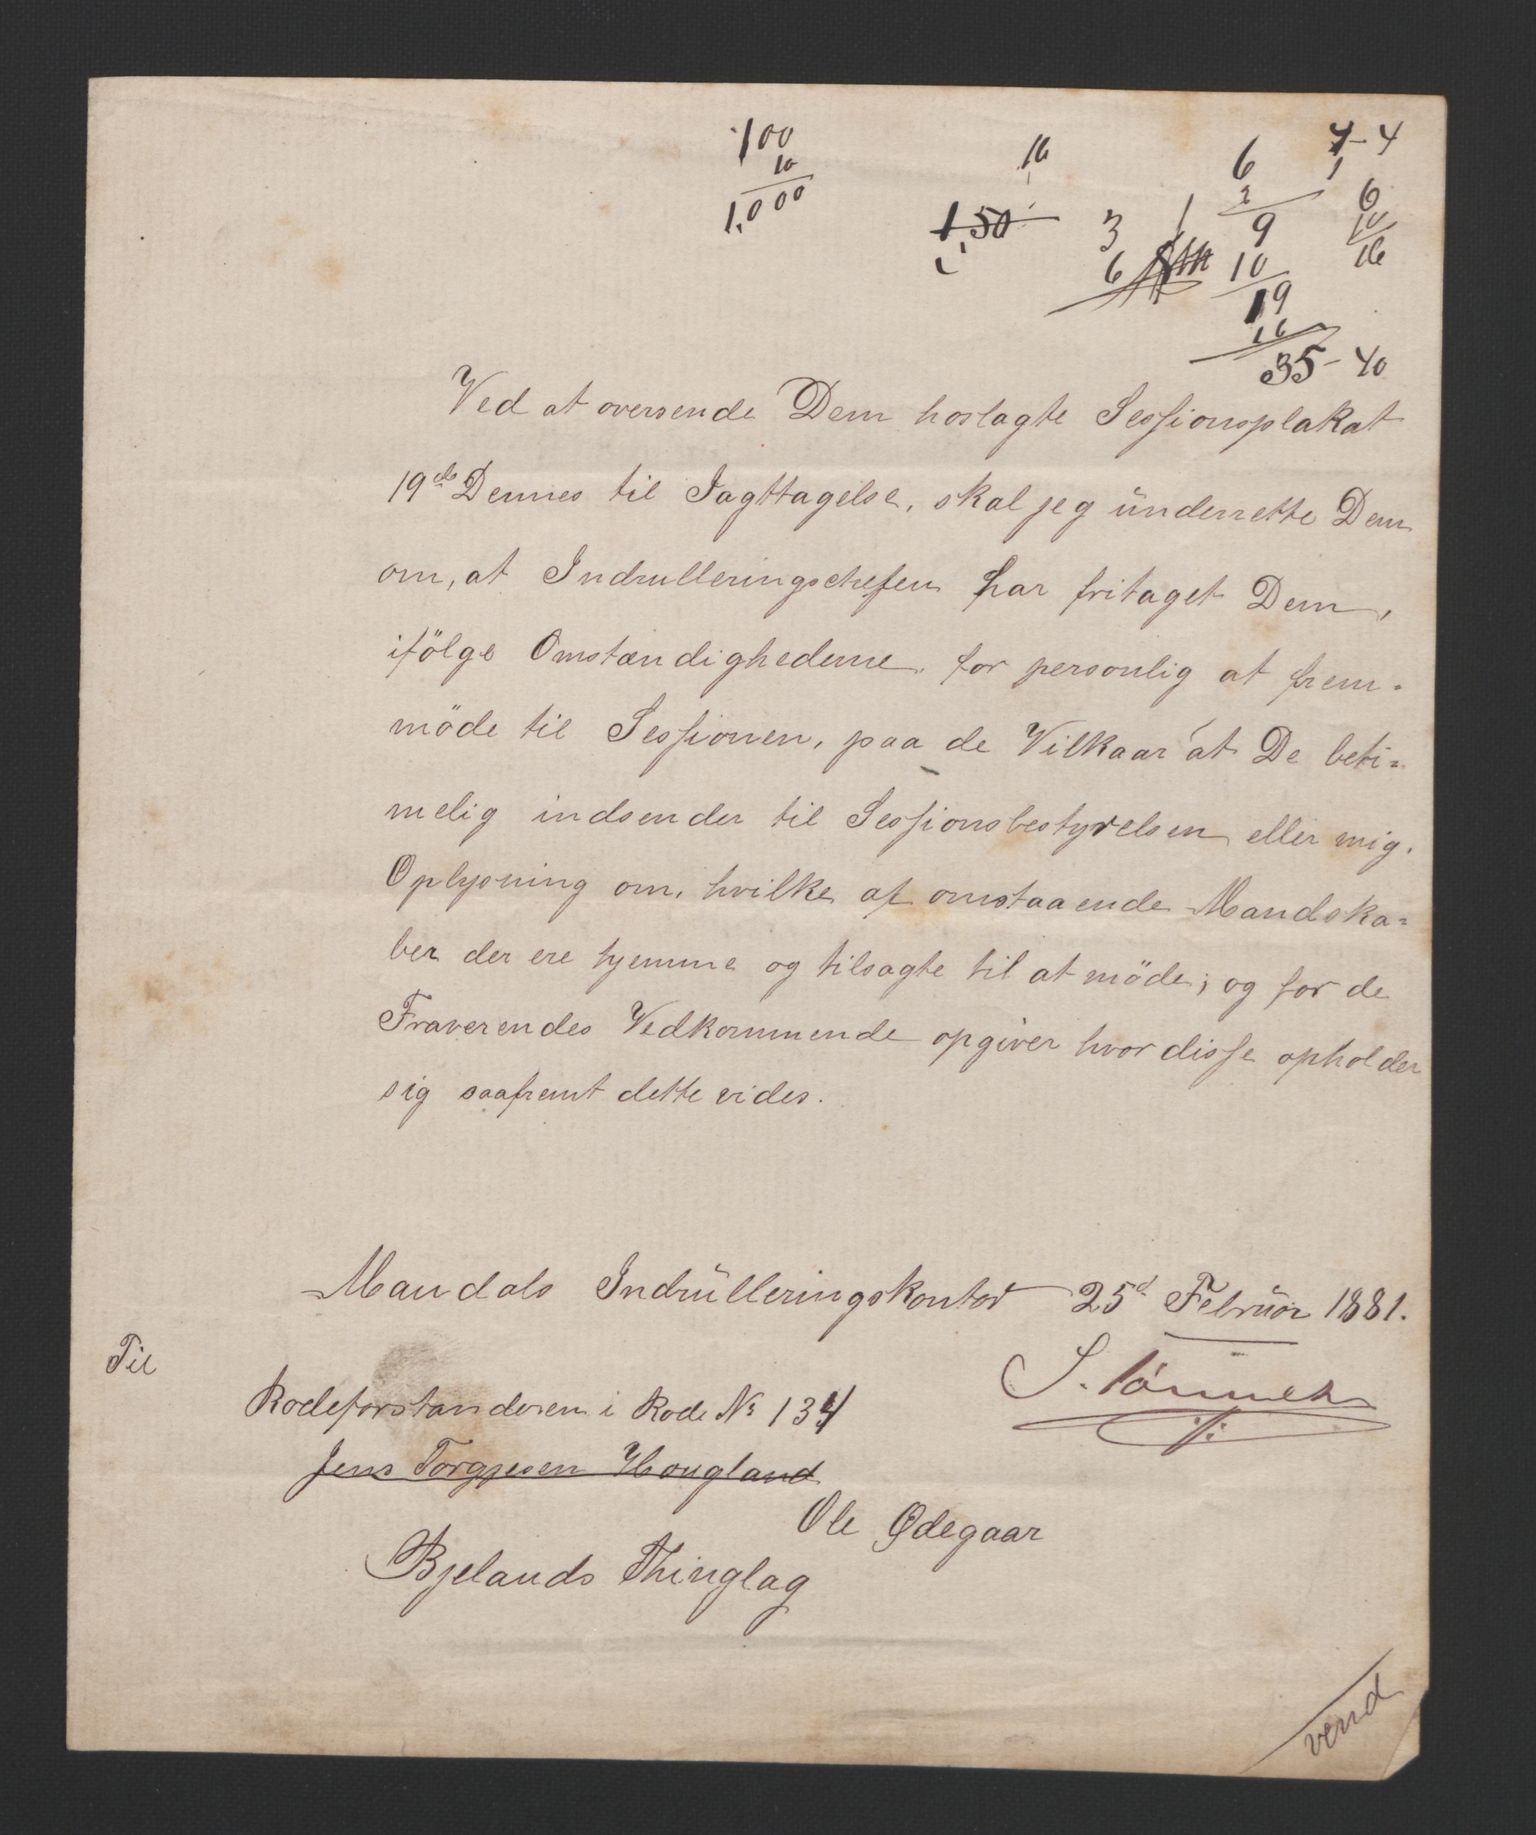 100
10
1,000
16
1,50
3
6
1
6
2
9
10
19
16
35-40
4-4
1
6
10
16
Ved at oversende Dem hoslagte Sessionsplakat
19de Dennes til Iagttagelse, skal jeg ünderrette Dem
om, at Indrulleringschefen har fritaget Dem,
ifölge Omstændighederne, for personlig at frem-
möde til Sessionen, paa de Vilkaar at De beti-
melig indsender til Sessionsbestyrelsen eller mig,
Oplysning om, hvilke af omstaaende Mandska-
ber der ere hjemme og tilsagte til at möde; og for de
Fraverendes Vedkommende opgiver hvor disse opholder
sig saafremt dette vides.
Mandals Indrülleringskontor 25d Februar 1881.
Til
Rodeforstanderen i Rode No 134
Jens Torgjesen Hougland
Ole Ødegaar
Bjelands Thinglag
vend